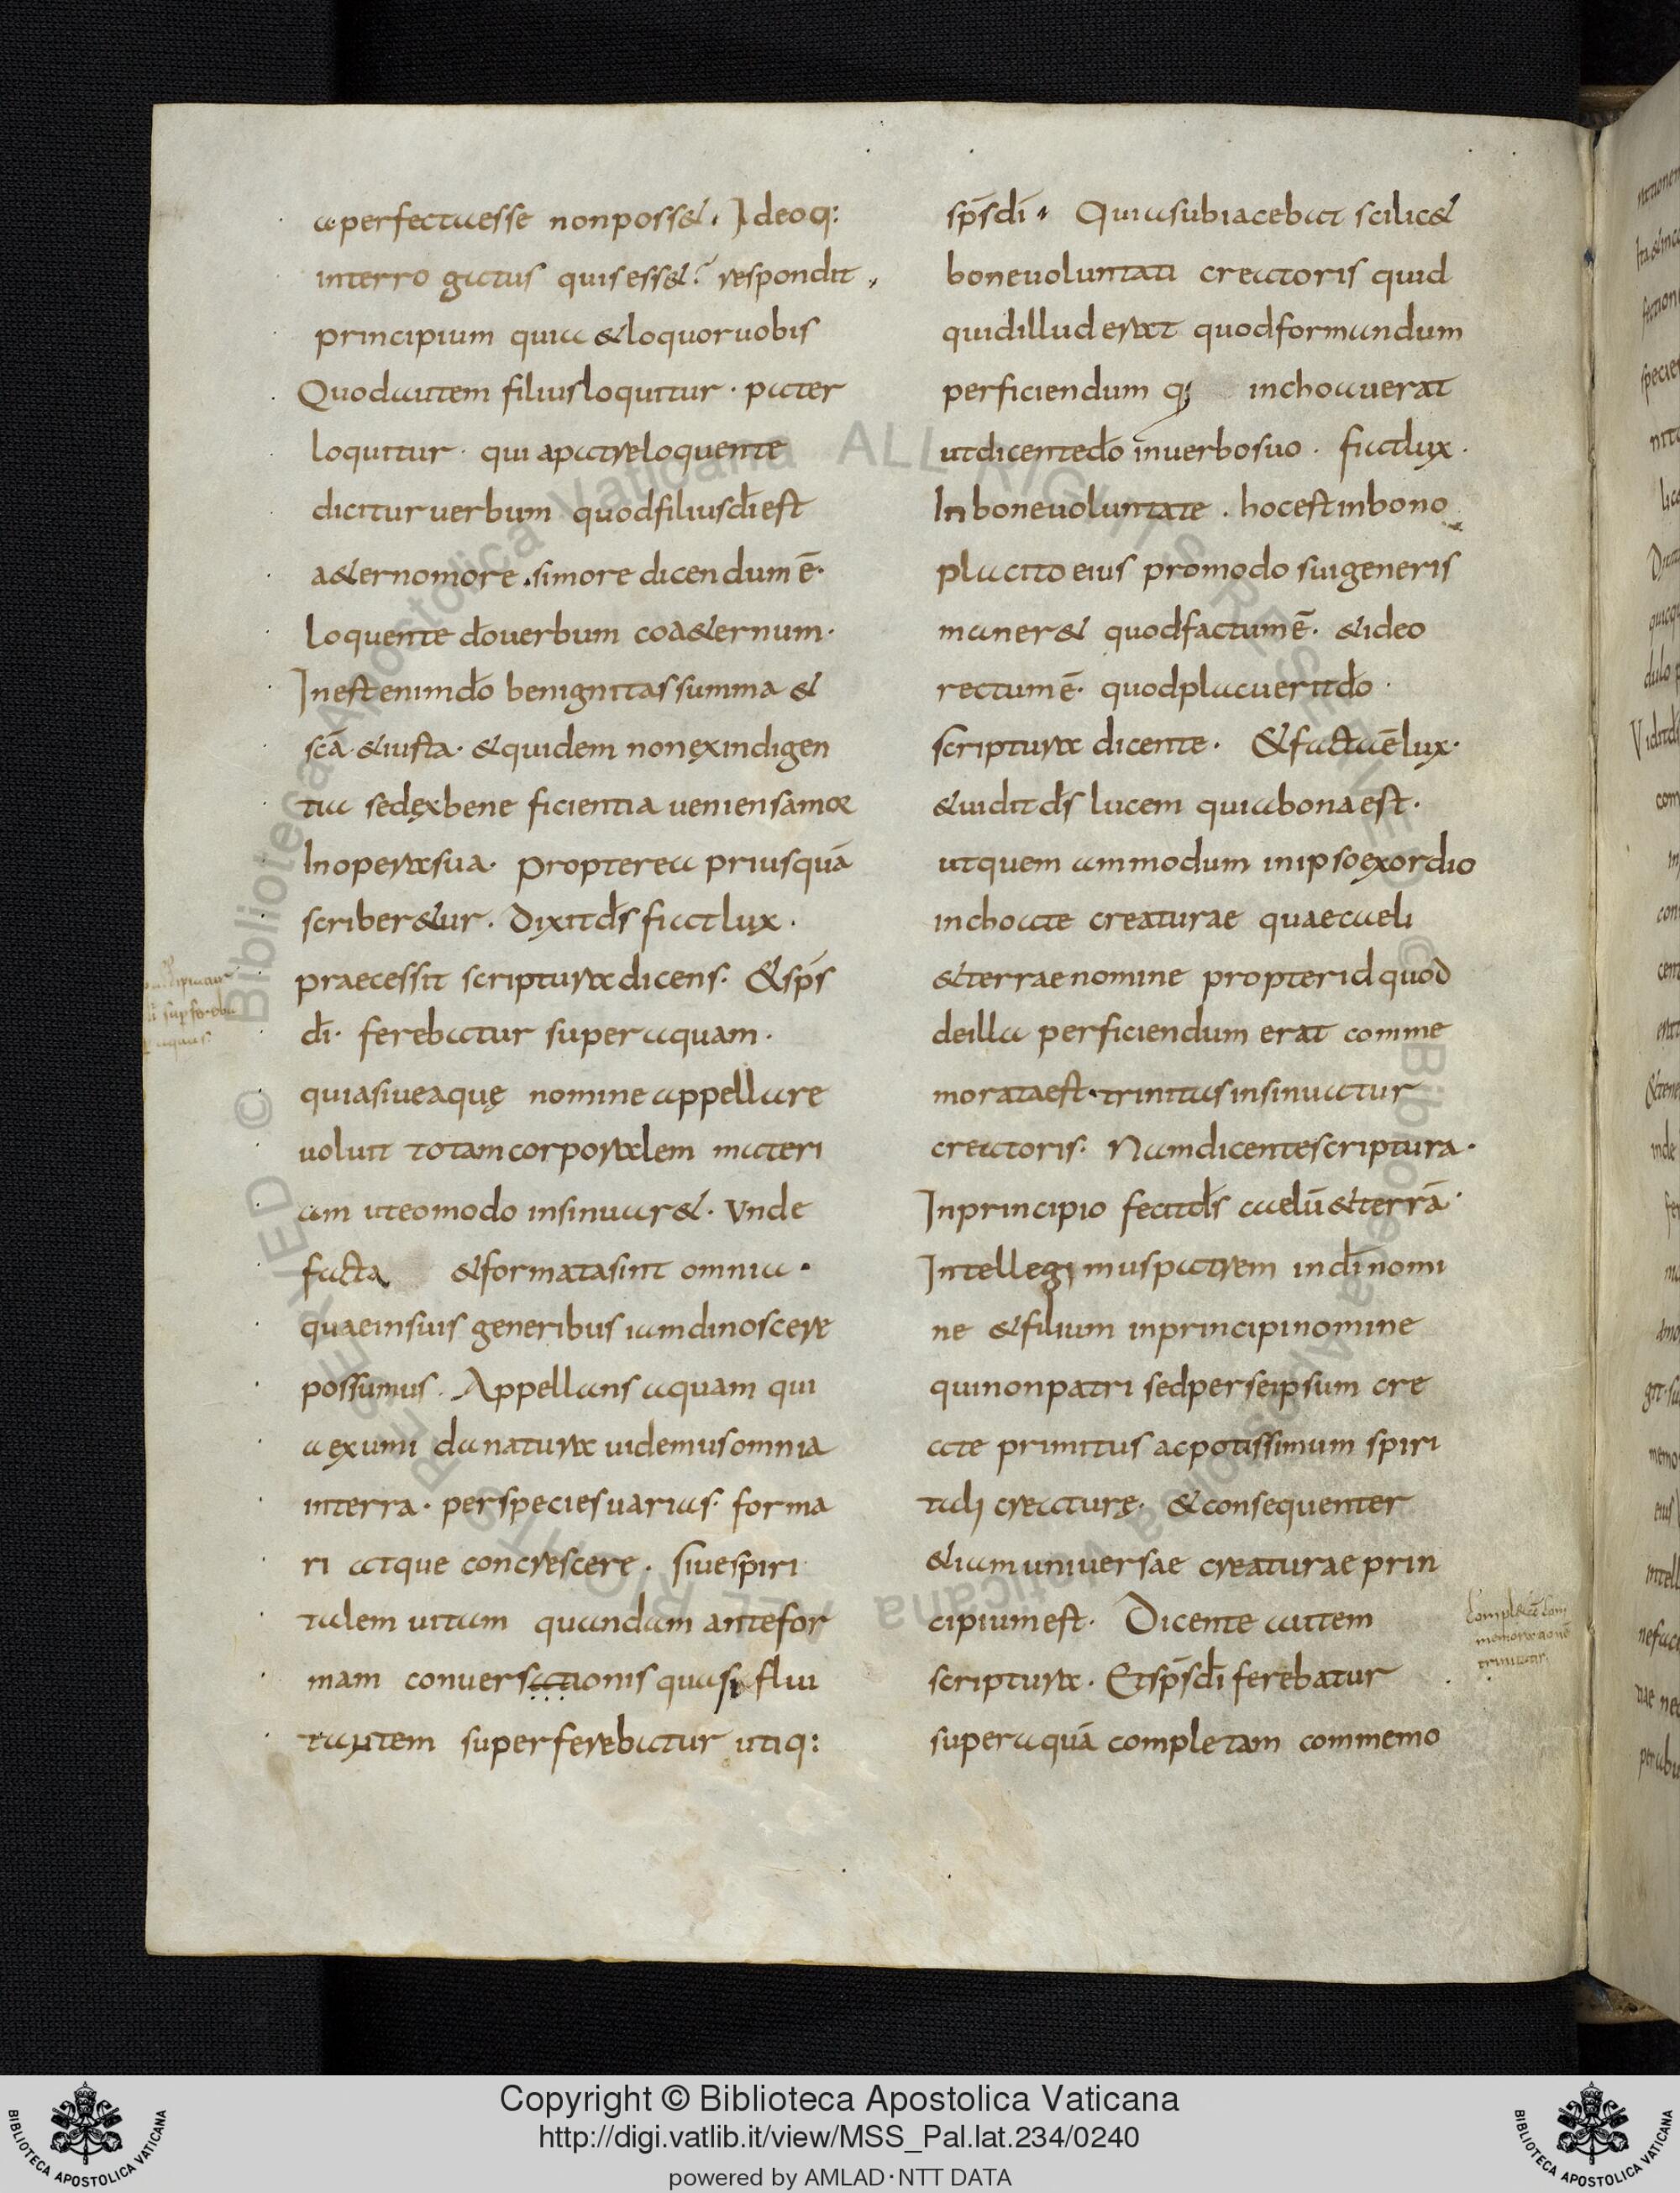 a perfecta esse non poss&. Ideoq:
interrogatus quis ess&? respondit,
principium quia & loquor uobis
Quod autem filius loquitur. pater
loquitur. qui a patre loquente
dicitur uerbum quod filius dī est
a&erno more. si more dicendum ē.
loquente dō uerbum coa&ernum.
Inest enim dō benignitas summa &
scā. & iusta. & quidem non ex indigen
tia sed ex bene ficientia ueniens amor
In opera sua. propterea priusquā
scriber&ur. Dixit ds̄ fiat lux.
praecessit scriptura dicens. & sp̄s
dī. ferebatur super aquam.
quia siue aquę nomine appellare
uoluit totam corporalem materi
am ut eo modo insinuar&. Vnde
facta & formata sint omnia.
quae in suis generibus iam dinoscere
possumus. Appellans aquam qui
a ex umi da natura uidemus omnia
in terra. per species uarias. forma
ri atque concrescere. siue spiri
talem uitam quandam ante for
mam conuersationis quasi flui
tantem superferebatur utiq:
sp̄s dī. Quia subiacebat scilic&
bone uoluntati creatoris quid
quid illud erat quod formandum
perficiendum q; inchoauerat
ut dicente dō in uerbo suo. fiat lux.
In bone uoluntate. hoc est in bono
placito eius pro modo sui generis
maner& quod factum ē. & ideo
rectum ē. quod placuerit dō.
scriptura dicente. & facta ē lux.
& uidit ds̄ lucem quia bona est.
ut quem ammodum in ipso exordio
inchoate creaturae quae caeli
& terrae nomine propter id quod
de illa perficiendum erat comme
morata est. trinitas insinuatur
creatoris. Nam dicente scriptura.
In principio fecit ds̄ caelū & terrā.
Intellegimus patrem in dī nomi
ne & filium in principi nomine
qui non patri sed per se ipsum cre
ate primitus ac potissimum spiri
tali creaturę. & consequenter
& iam uniuersae creaturae prin
cipium est. Dicente autem
scriptura. Et sp̄s dī ferebatur
super aquā completam commemo
Copyright © Biblioteca Apostolica Vaticana
http://digi.vatlib.it/view/MSS_Pal.lat.234/0240
powered by AMLAD·NTT DATA
BIBLIOTECA APOSTOLICA VATICANA
BIBLIOTECA APOSTOLICA VATICANA